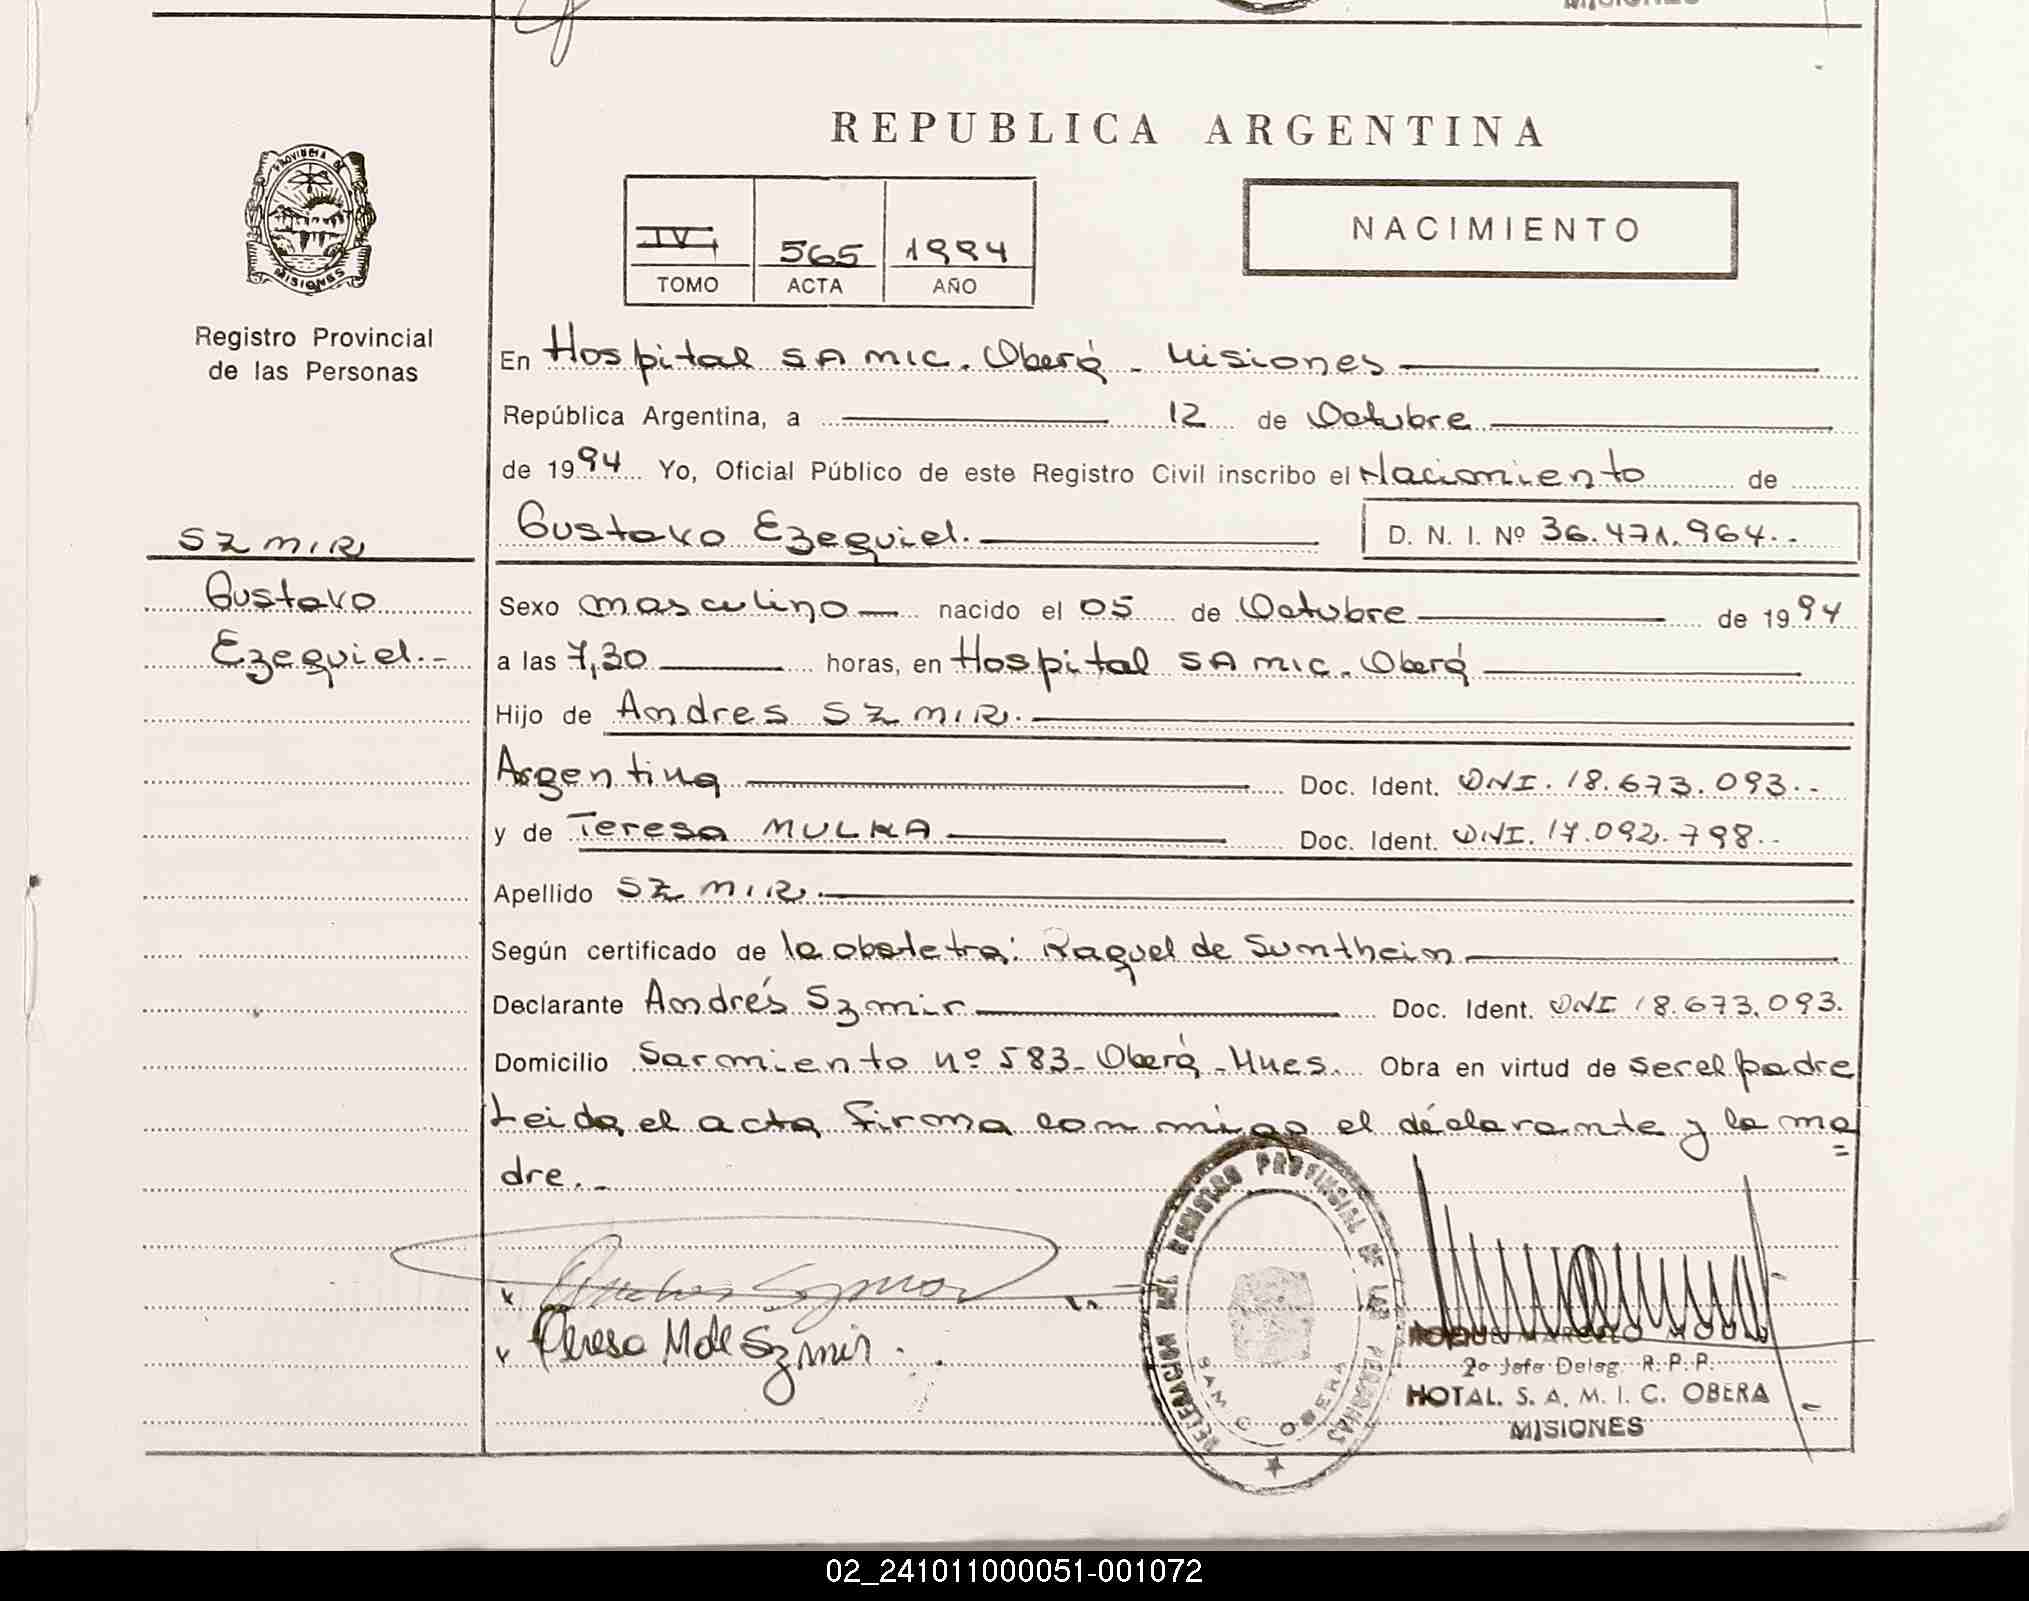 MISIONES
REPUBLICA ARGENTINA
PROVINCIA DE
MISIONES
Registro Provincial
de las Personas
IV 565 1994
TOMO ACTA AÑO
NACIMIENTO
En Hospital SAMIC. Oberá - Misiones
República Argentina, a 12 de Octubre
de 1994 Yo, Oficial Público de este Registro Civil inscribo el Nacimiento de
Gustavo Ezequiel. D. N. I. Nº 36.471.964.-
SZMIR
Gustavo
Ezequiel.-
Sexo masculino nacido el 05 de Octubre de 1994
a las 7,30 horas, en Hospital SAMIC. Oberá
Hijo de Andres SZMIR.
Argentina Doc. Ident. DNI. 18.673.093.-
y de Teresa MULKA Doc. Ident. DNI. 17.092.798.-
Apellido SZMIR.
Según certificado de la obstetra: Raquel de Sunthein
Declarante Andrés Szmir Doc. Ident. DNI 18.673.093.
Domicilio Sarmiento nº 583- Oberá - Mnes. Obra en virtud de ser el padre
Leida el acta firma conmigo el déclarante y la ma=
dre.-
Teresa M de Szmir.
DELEGACION DEL REGISTRO PROVINCIAL DE LAS PERSONAS
SAMIC OBERA
2º Jefe Deleg. R. P. P.
HOTAL. S. A. M. I. C. OBERA
MISIONES
02_241011000051-001072